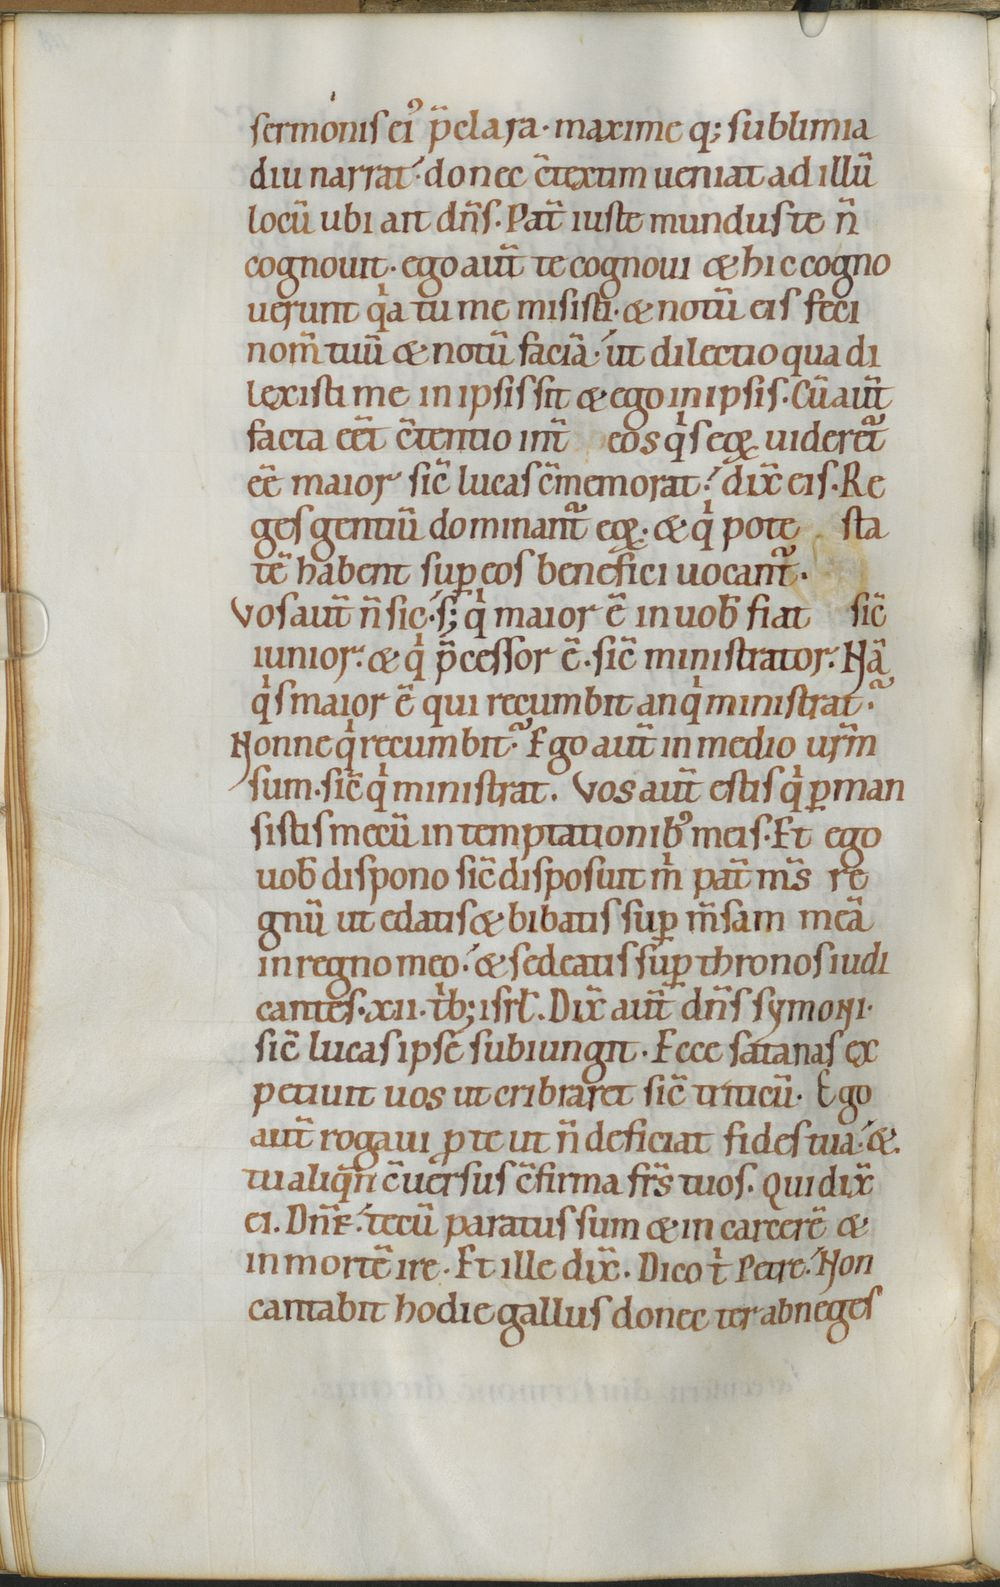 sermonis ei᾽ p̄clara· maxime q; sublimia
diu narrat· donec c̄textim ueniat ad illū
locū ubi ait dn̄s. Pat̄ iuste mundus te n̄
cognouit· ego aut̄ te cognoui & hic cogno
uerunt qͥa tu me misisti· & notū eis feci
nom̄ tuū & notū faciā· ut dilectio qua di
lexisti me in ipsis sit & ego in ipsis. Cū aut̄
facta eēt c̄tentio int̄ eos qͥs eoꝝ uideret᷑
eē maior sic̄ lucas c̄memorat· dix̄ eis. Re
ges gentiū dominant᷑ eoꝝ· & qͥ pote sta
tē habent suꝑ eos benefici uocant᷑.
Vos aut̄ n̄ sic· s; qͥ maior ē in uob̄ fiat sic̄
iunior· & qͥ p̄cessor ē· sic̄ ministrator. Nā
qͥs maior ē qui recumbit an qͥ ministrat?
Nonne qͥ recumbit? Ego aut̄ in medio ur̄m
sum· sic̄ qͥ ministrat. Vos aut̄ estis qͥ ꝑman
sistis mecū in temptationib᾽ meis. Et ego
uob̄ dispono sic̄ disposuit mͥ pat̄ m̄s re
gnū ut edatis & bibatis suꝑ m̄sam meā
in regno meo· & sedeatis suꝑ thronos iudi
cantes· xii· tͥb; isrl̄. Dix̄ aut̄ dn̄s symoni·
sic̄ lucas ipse subiungit. Ecce satanas ex
petiuit uos ut cribraret sic̄ triticū. Ego
aut̄ rogaui ꝓ te ut n̄ deficiat fides tua· &
tu aliqn̄ c̄uersus c̄firma fr̄s tuos. Qui dix̄
ei. Dn̄e· tecū paratus sum & in carcerē &
in mortē ire. Et ille dix̄. Dico tͥ Petre· Non
cantabit hodie gallus donec ter abneges